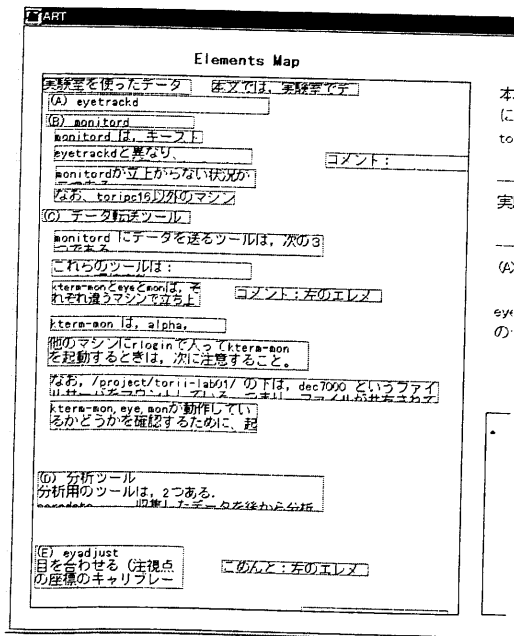 ART
Elements Map
実験室を使ったデータ 本文では，実験室でデ
(A) eyetrackd
(B) monitord
monitord は，キースト
eyetrackdと異なり、
コメント：
monitordが立上がらない状況が
なお，toripc16以外のマシン
(C) データ転送ツール
monitord にデータを送るツールは，次の3
つである
これらのツールは：
kterm-monとeyeとmonは，そ
れぞれ違うマシンで立ち上
コメント：左のエレメ
kterm-mon は，alpha，
他のマシンにrloginで入ってkterm-mon
を起動するときは，次に注意すること。
なお，/project/torii-lab01/ の下は，dec7000 というファイ
ルサーバをマウントしている。つまり，ファイルが共有されて
kterm-mon,eye,monが動作してい
るかどうかを確認するために、起
(D) 分析ツール
分析用のツールは，2つある．
収集したデータを後から分析
(E) eyadjust
目を合わせる（注視点
の座標のキャリブレー
こめんと：左のエレメ
本
に
to
実
(A)
eye
の